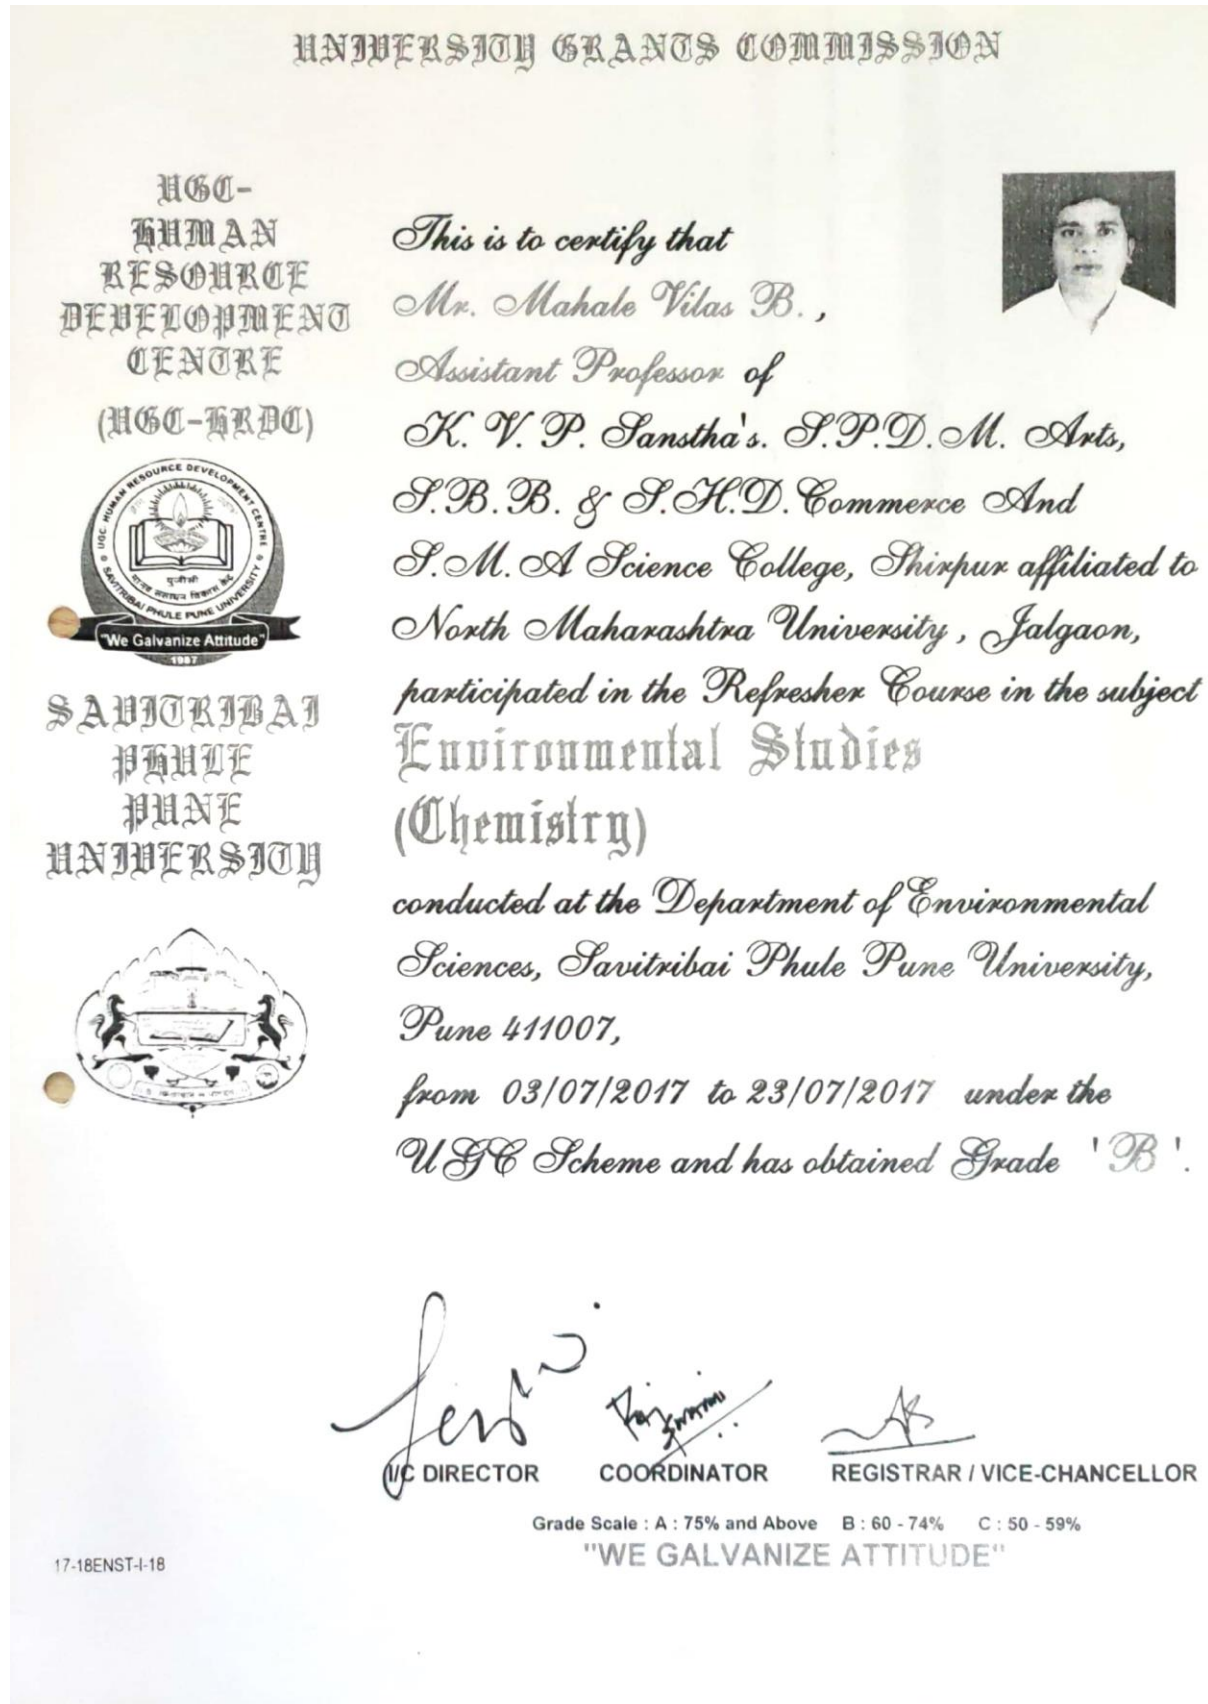 UNIVERSITY GRANTS COMMISSION
UGC-
HUMAN
RESOURCE
DEVELOPMENT
CENTRE
(UGC-HRDC)
UGC- HUMAN RESOURCE DEVELOPMENT CENTRE
SAVITRIBAI PHULE PUNE UNIVERSITY
यूजीसी
मानव संसाधन विकास केंद्र
"We Galvanize Attitude"
1987
SAVITRIBAI
PHULE
PUNE
UNIVERSITY
This is to certify that
Mr. Mahale Vilas B. ,
Assistant Professor of
K. V. P. Sanstha's. S.P.D.M. Arts,
S.B.B. & S.H.D. Commerce And
S.M. A Science College, Shirpur affiliated to
North Maharashtra University , Jalgaon,
participated in the Refresher Course in the subject
Environmental Studies
(Chemistry)
conducted at the Department of Environmental
Sciences, Savitribai Phule Pune University,
Pune 411007,
from 03/07/2017 to 23/07/2017 under the
UGC Scheme and has obtained Grade 'B'.
I/C DIRECTOR COORDINATOR REGISTRAR / VICE-CHANCELLOR
Grade Scale : A : 75% and Above B : 60 - 74% C : 50 - 59%
"WE GALVANIZE ATTITUDE"
17-18ENST-I-18